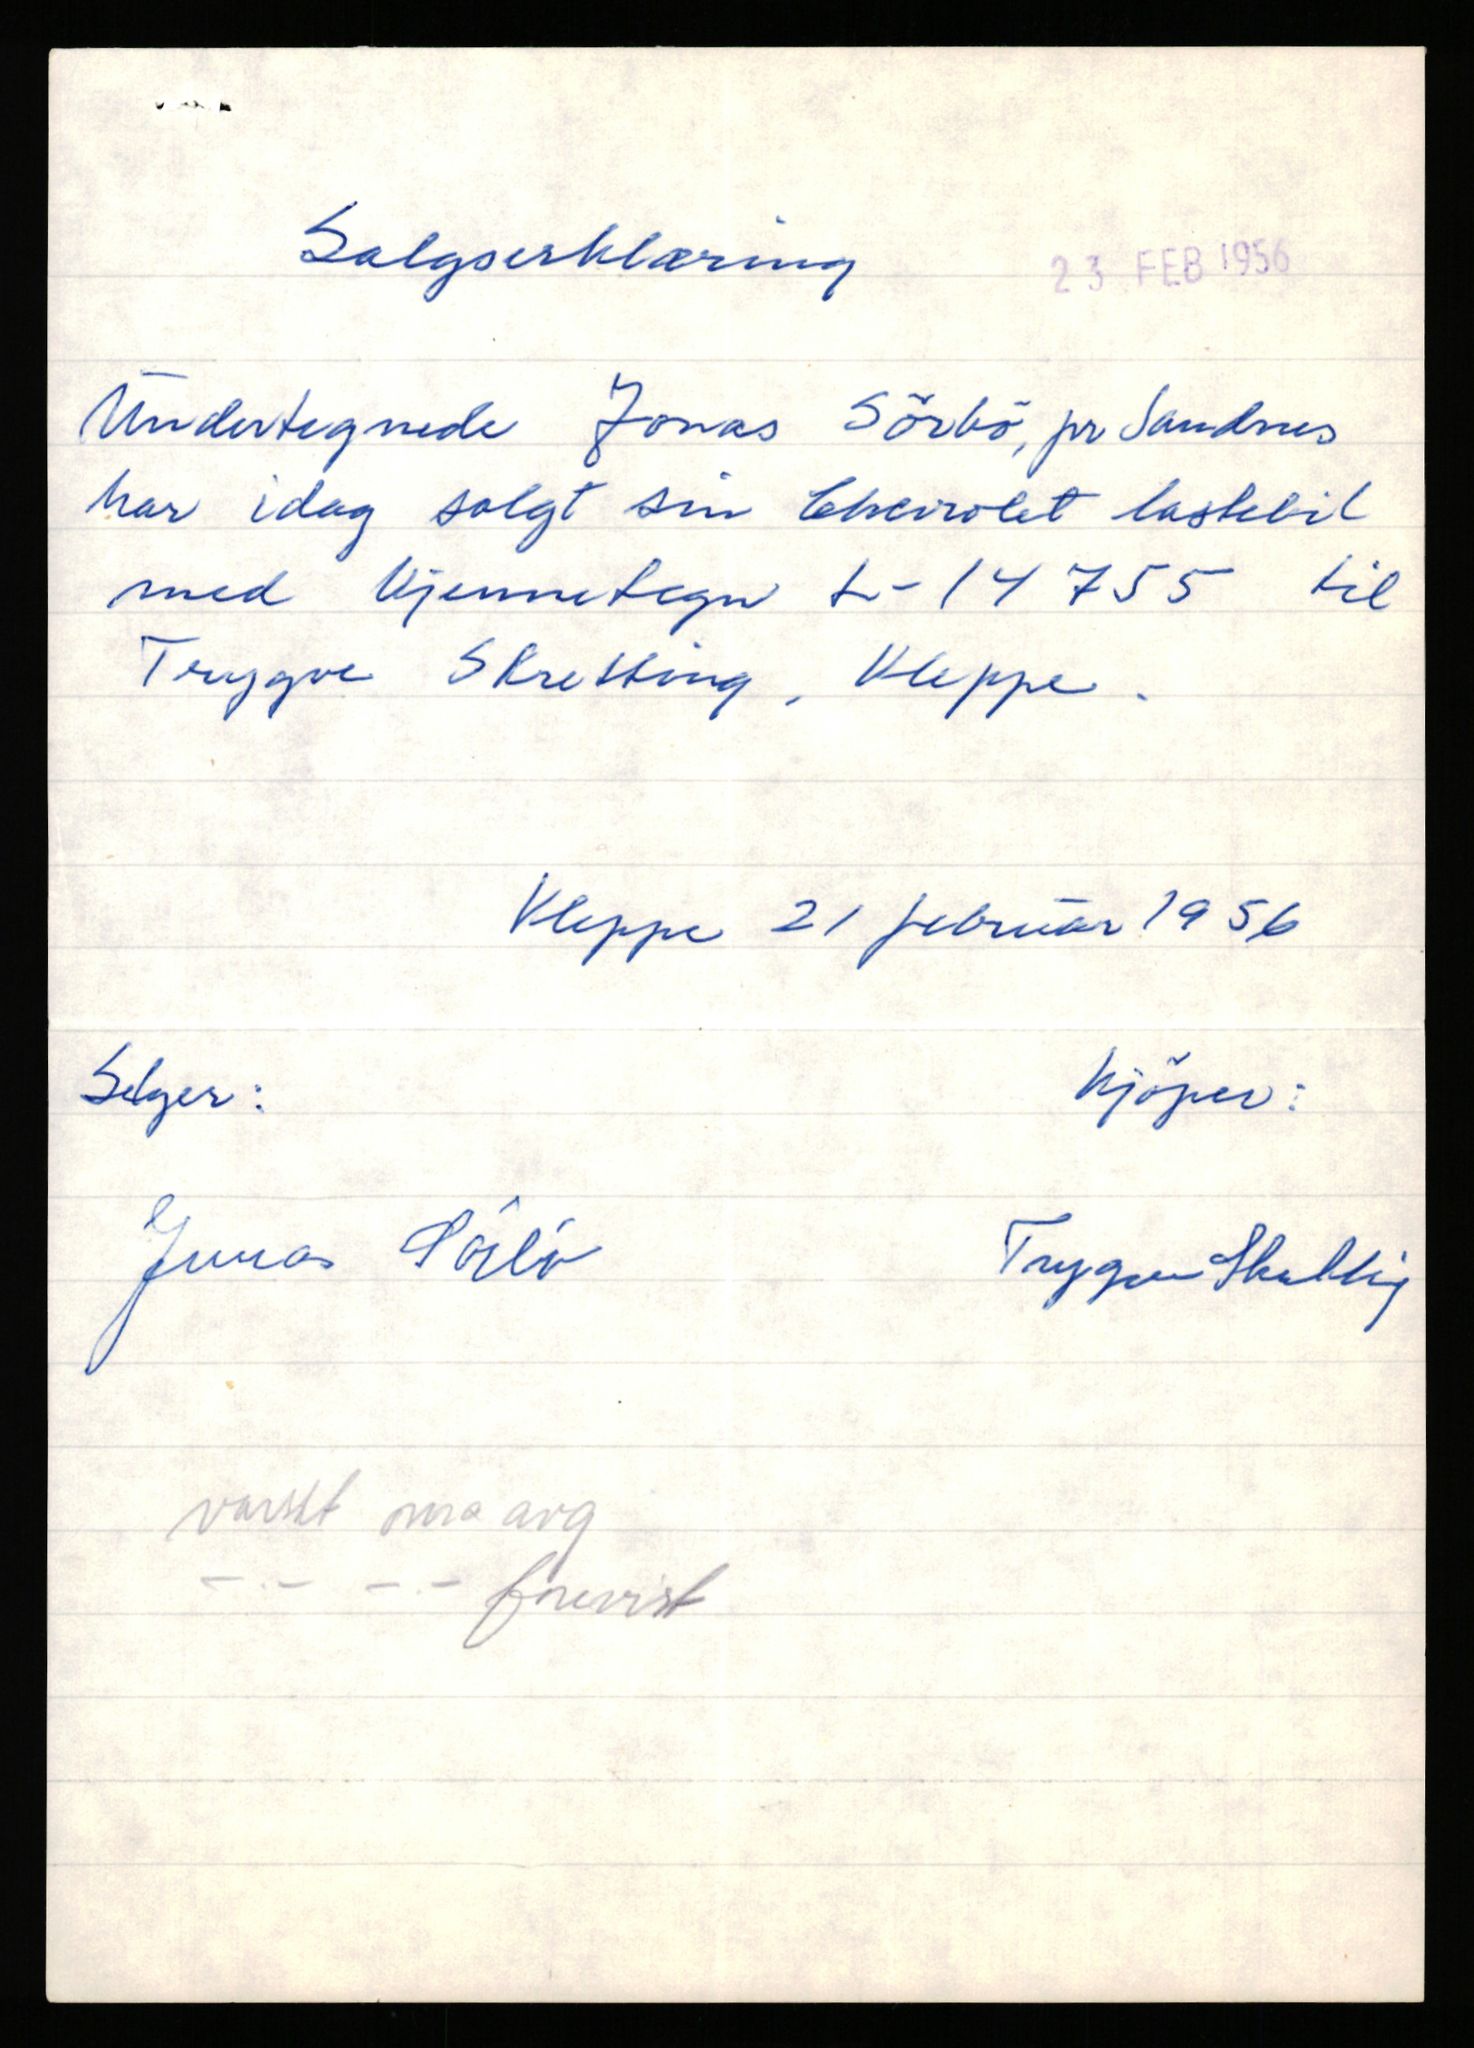 Salgserklæring
23 FEB 1956
Undertegnede Jonas Sörbö, pr Sandnes
har idag solgt sin Chevrolet lastebil
med kjennetegn L-14755 til
Trygve Skretting, Kleppe.
Kleppe 21 februar 1956
Selger: Kjöper:
Jonas Sörbö Trygve Skretting
varslt oms avg
-.- -.- forevist